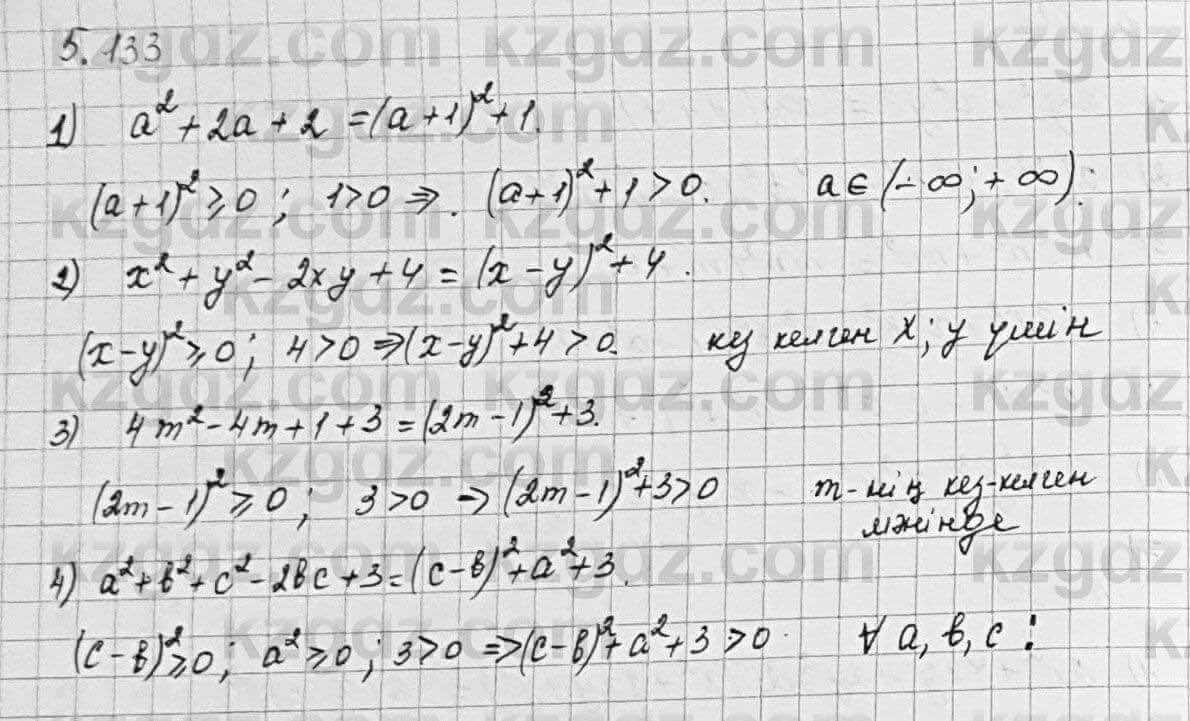 5.133
1) a² + 2a + 2 = (a+1)² + 1.
(a+1)² ⩾ 0 ; 1>0 ⇒. (a+1)² + 1 > 0. a ∈ (-∞; +∞).
2) x² + y² - 2xy + 4 = (x - y)² + 4.
(x-y)² ⩾ 0 ; 4>0 ⇒ (x-y)² + 4 > 0. кез келген x; y үшін
3) 4m² - 4m + 1 + 3 = (2m - 1)² + 3.
(2m - 1)² ⩾ 0 ; 3 > 0 ⇒ (2m - 1)² + 3 > 0 m-нің кез-келген
мәнінде
4) a² + b² + c² - 2bc + 3 = (c-b)² + a² + 3.
(c-b)² ⩾ 0 ; a² ⩾ 0 ; 3>0 ⇒ (c-b)² + a² + 3 > 0. ∀ a, b, c !
kzgdz.com